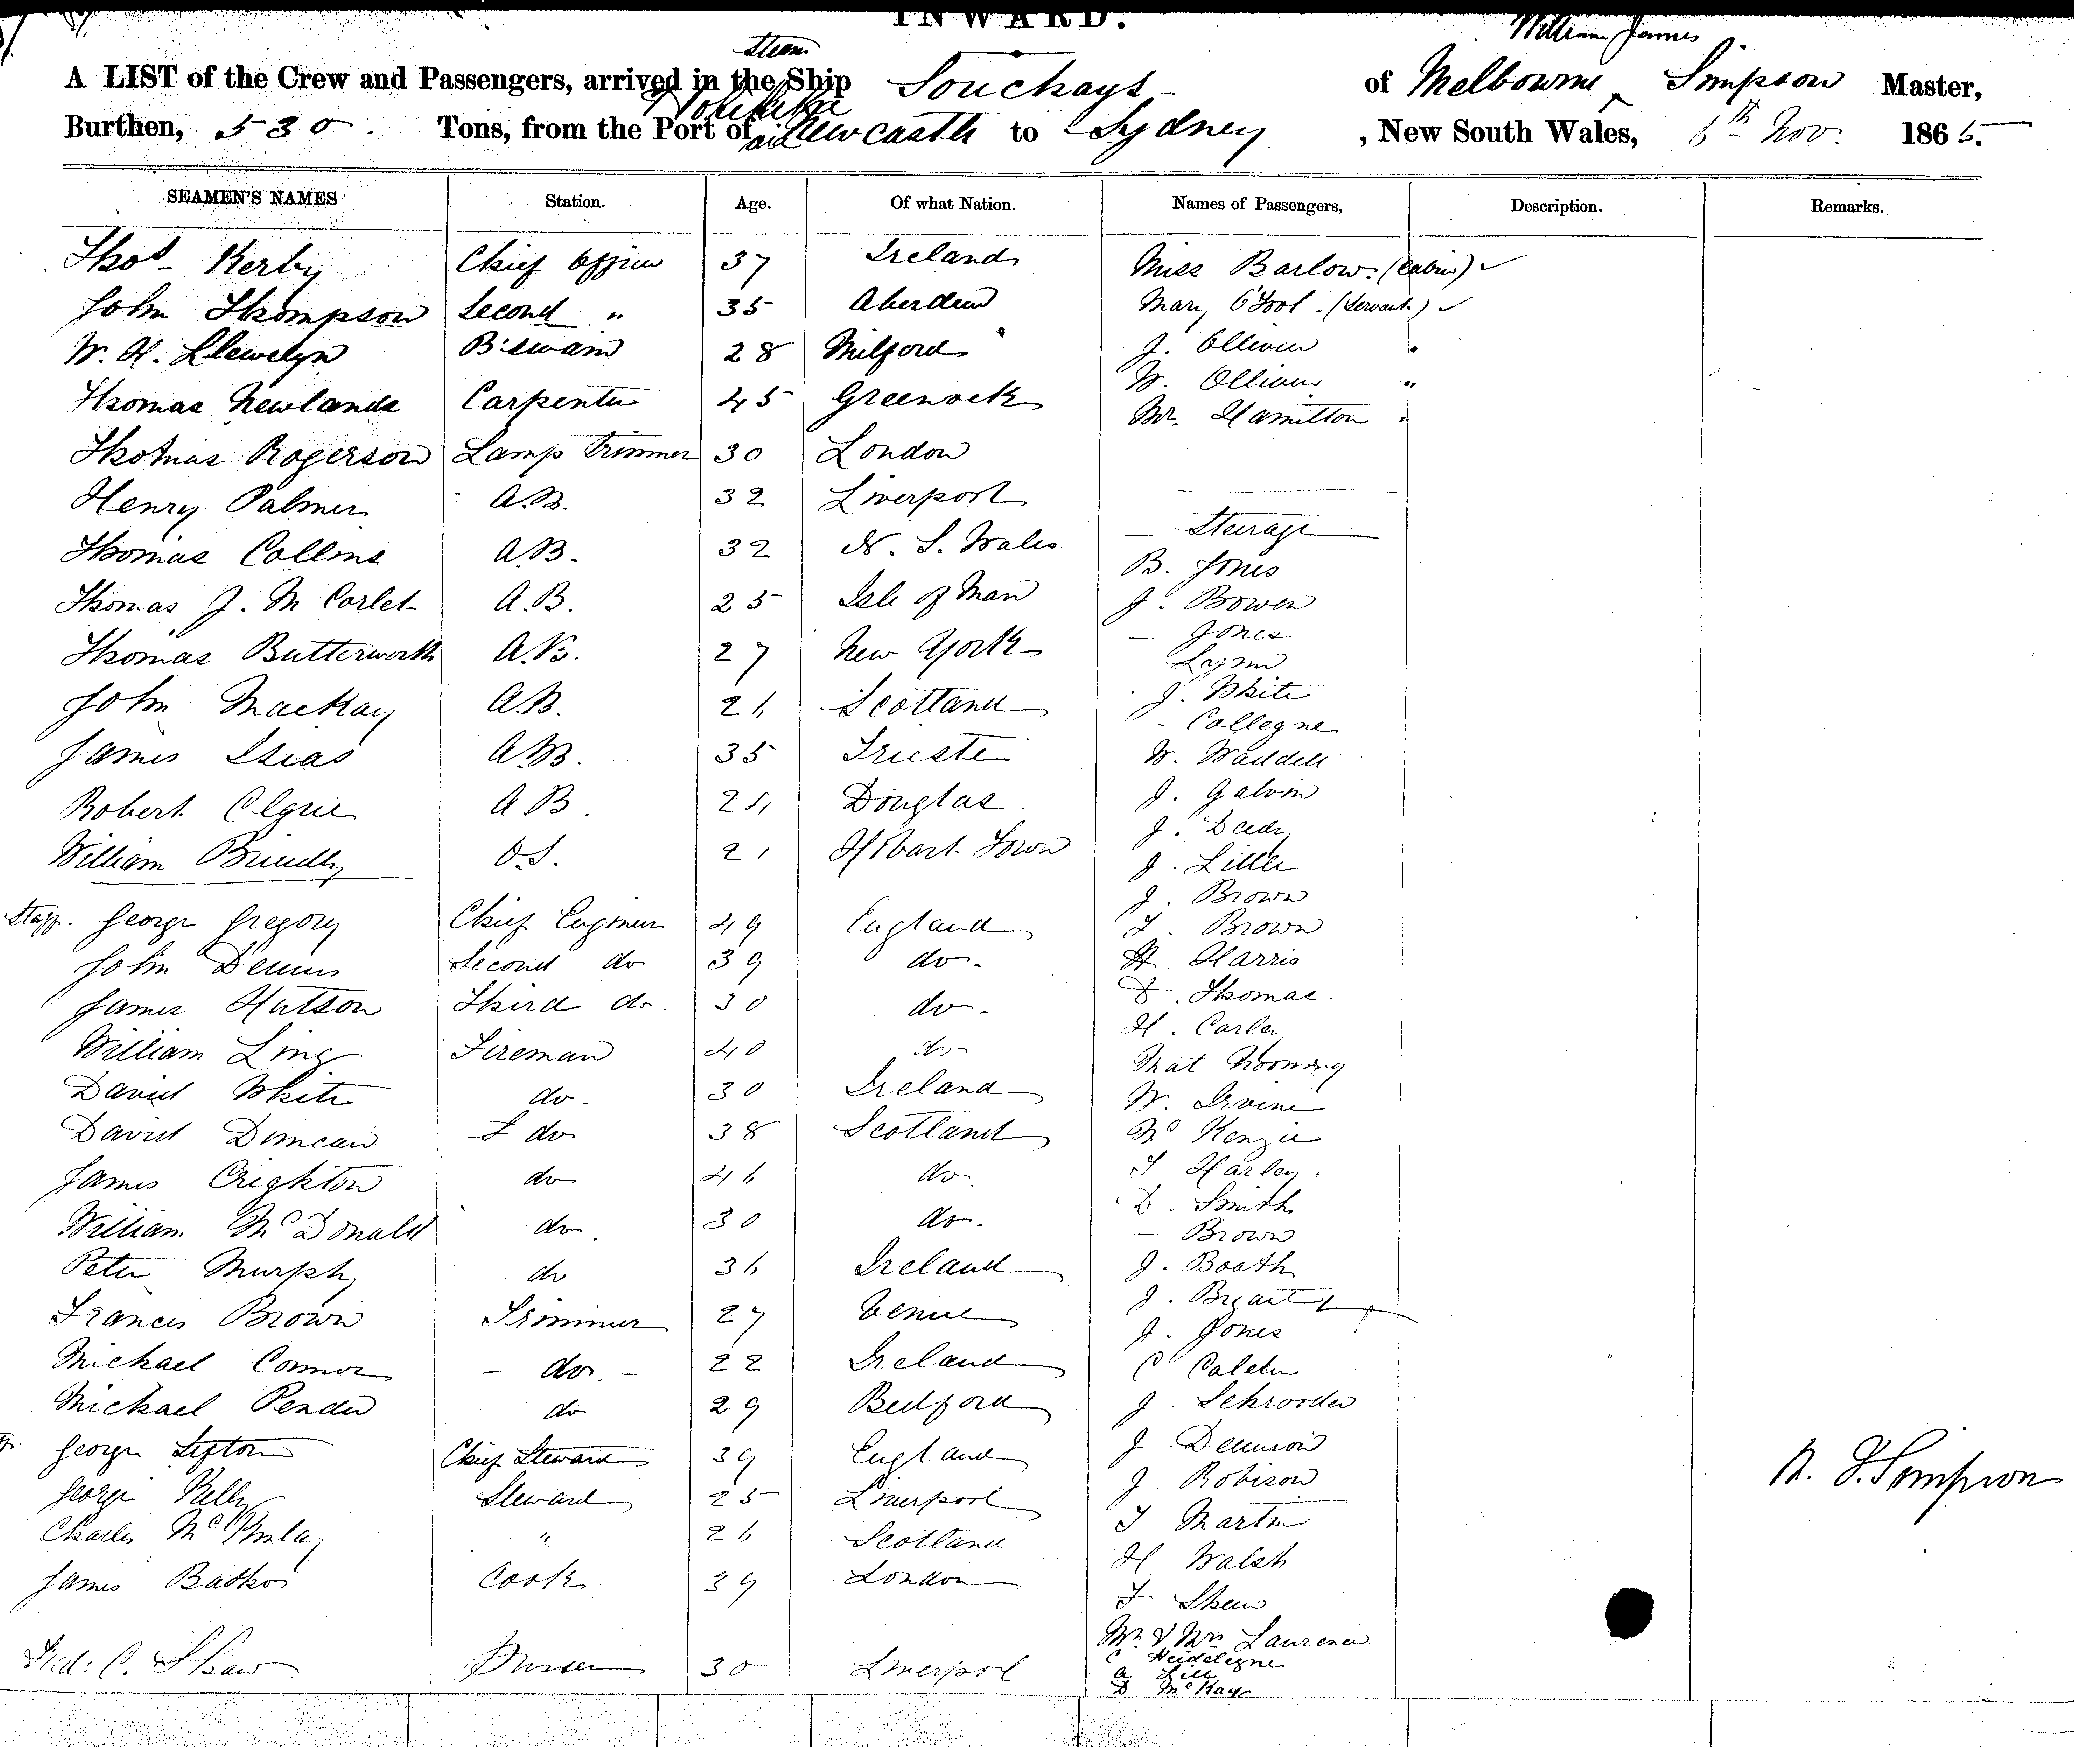 INWARD.
Steam William James
A LIST of the Crew and Passengers, arrived in the Ship Souchays of Melbourne Simpson Master,
Hokitika
Burthen, 530. Tons, from the Port of via Newcastle to Sydney, New South Wales, 6th Nov. 1865.
SEAMEN'S NAMES Station. Age. Of what Nation. Names of Passengers, Description. Remarks.
Thos Kerby Chief Officer 37 Ireland Miss Barlow (Cabin)
John Thompson Second " 35 Aberdeen Mary O'Tool (Servant)
W. H. Llewelyn B'swain 28 Milford J. Ollivier "
Thomas Newlands Carpenter 45 Greenock W. Ollivier "
Mr. Hamilton "
Thomas Rogerson Lamp Trimmer 30 London
Henry Palmer A.B. 32 Liverpool
Steerage
Thomas Collins A.B. 32 N. S. Wales B. Jones
Thomas J. M Corlet A.B. 25 Isle of Man J. Bowen
— Jones
Thomas Butterworth A.B. 27 New York Lynn
John MacKay A.B. 26 Scotland J. White
— Collegne
James A.B. 35 Trieste W. Waddell
Robert Elgrie A B 26 Douglas J. Galvin
J. Deedy
William Brindly O.S. 21 Hobart Town J. Little
J. Brown
Staff. George Gregory Chief Engineer 49 England T. Brown
John Dennis Second do 39 do. H. Harris
James Hutson Third do. 30 do. Thomas
H. Carley
William Ling Fireman 40 do Mat
David White do. 30 Ireland W. Irvine
David Duncan L do 38 Scotland McKenzie
James Crighton do 46 do. T Harley
D. Smith
William McDonald do. 30 do. — Brown
Peter Murphy do 36 Ireland J. Booth
J. Bryant
Francis Brown Trimmer 27 Venice J. Jones
Michael Connor — do. — 22 Ireland C Calder
Michael Pender do 29 Bedford J Schrooder
George Sefton Chief Steward 39 England J Dennison
George Kelly Steward 25 Liverpool J Robison
W. J. Simpson
Charles McKinlay " 26 Scotland T Martin
H Walsh
James Cook 39 London T. Shaw
Mr. & Mrs Laurence
C Heidelegne
Fred. C. Shaw Purser 30 Liverpool A Lill
D McKay